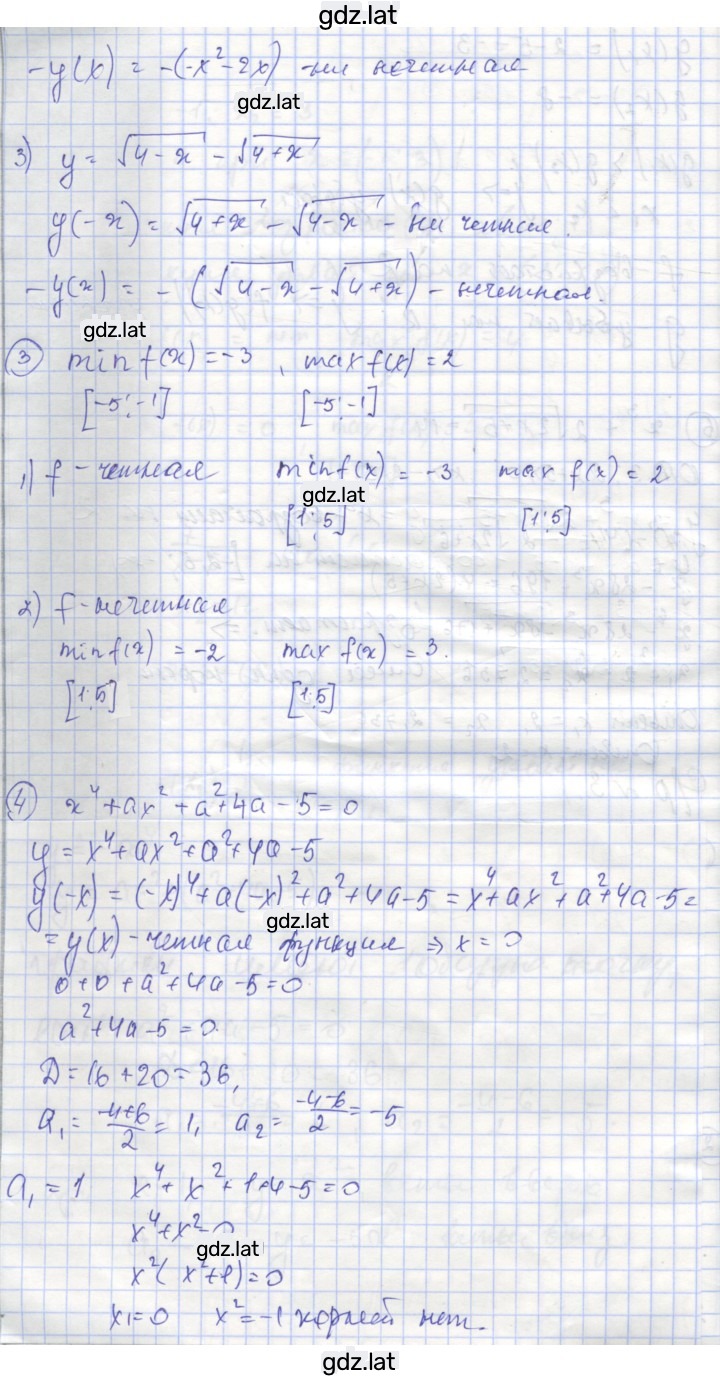 gdz.lat
-y(x) = -(-x² - 2x) - ни нечетная
gdz.lat
3) y = √4-x - √4+x
y(-x) = √4+x - √4-x - ни четная.
-y(x) = - (√4-x - √4+x) - нечетная.
gdz.lat
③ min f(x) = -3 , max f(x) = 2
[-5;-1] [-5;-1]
1) f - четная min f(x) = -3 max f(x) = 2
gdz.lat
[1;5] [1;5]
2) f - нечетная
min f(x) = -2 max f(x) = 3.
[1;5] [1;5]
④ x⁴ + ax² + a² + 4a - 5 = 0
y = x⁴ + ax² + a² + 4a - 5
y(-x) = (-x)⁴ + a(-x)² + a² + 4a - 5 = x⁴ + ax² + a² + 4a - 5 =
gdz.lat
= y(x) - четная функция ⇒ x = 0
0 + 0 + a² + 4a - 5 = 0
a² + 4a - 5 = 0.
D = 16 + 20 = 36,
a₁ = (-4+6)/2 = 1, a₂ = (-4-6)/2 = -5
a₁ = 1 x⁴ + x² + 1 + 4 - 5 = 0
x⁴ + x² = 0
gdz.lat
x²(x² + 1) = 0
x₁ = 0 x² = -1 корней нет.
gdz.lat